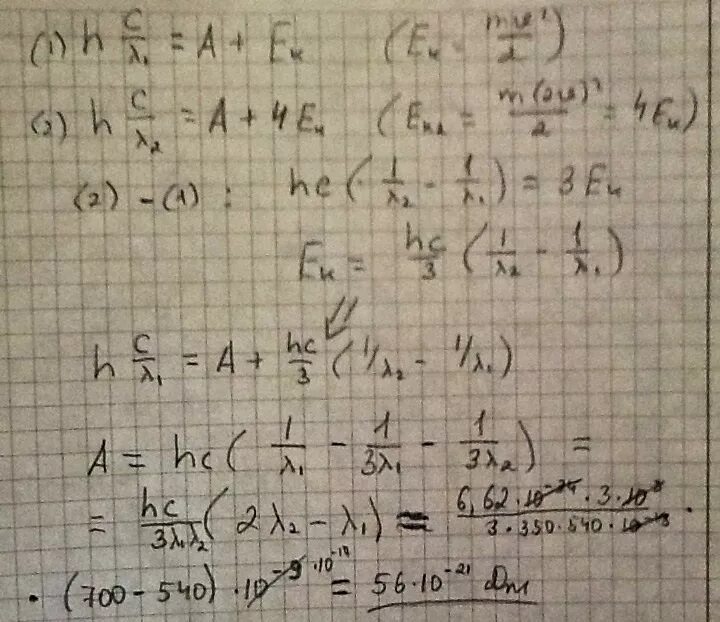 (1) h c/λ₁ = A + Eк (Eк = mv²/2)
(2) h c/λ₂ = A + 4Eк (Eк₂ = m(2v)²/2 = 4Eк)
(2) - (1) : hc (1/λ₂ - 1/λ₁) = 3Eк
Eк = hc/3 (1/λ₂ - 1/λ₁)
h c/λ₁ = A + hc/3 (1/λ₂ - 1/λ₁)
A = hc ( 1/λ₁ - 1/3λ₁ - 1/3λ₂ ) =
= hc/3λ₁λ₂ ( 2λ₂ - λ₁ ) = 6,62·10⁻³⁴·3·10⁸/3·350·540·10⁻¹⁸ ·
· (700 - 540) ·10⁻⁹·10⁻¹⁰ = 56·10⁻²¹ Дж